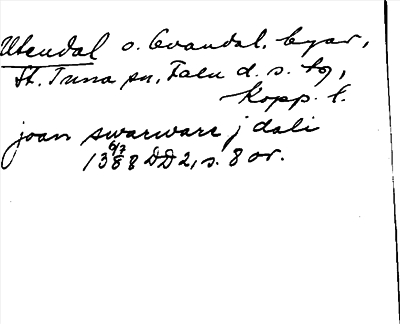 Utendal o. Ovandal, byar,
St. Tuna sn, Falu d. s. tg,
Kopp. l.
joan swarware j dali
6/7
1388 DD 2, s. 8 or.